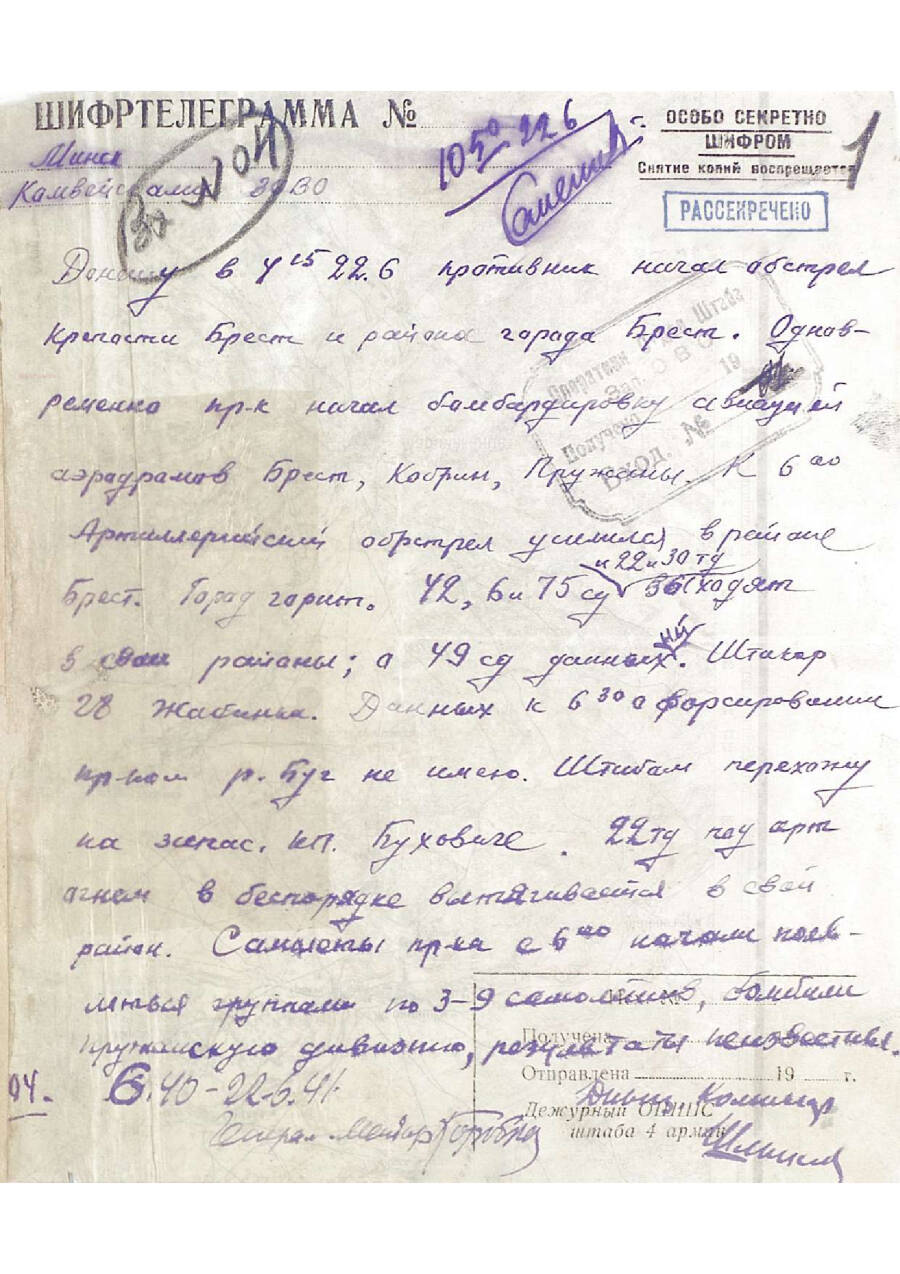 ШИФРТЕЛЕГРАММА № г.
ОСОБО СЕКРЕТНО
ШИФРОМ
Снятие копий воспрещается
1
РАССЕКРЕЧЕНО
Минск
Вх № 04
10 50 22 6
Доношу в 4 15 22.6 противник начал обстрел
крепости Брест и района города Брест. Однов-
ременно пр-к начал бомбардировку авиацией
аэродромов Брест, Кобрин, Пружаны. К 6 00
Артиллерийский обстрел усилился в районе
и 22 и 30 тд
Брест. Город горит. 42, 6 и 75 сд выходят
в свои районы; о 49 сд данных нет. Штакор
28 Жабинка. Данных к 6 30 о форсировании
пр-ком р. Буг не имею. Штабом перехожу
на запас. кп. Буховиче. 22 тд под арт
огнем в беспорядке вытягивается в свой
район. Самолеты пр-ка с 6 00 начали появ-
ляться группами по 3-9 самолетов, бомбили
пружанскую дивизию, результаты неизвестны.
04. 6.40-22.6.41.
Генерал-майор Коробков
Дивиз Комиссар
Шлыков
Оперативн Штаба
Зап. ОВО
Получено 19
Вход. №
Получена
Отправлена 19 г.
Дежурный
штаба 4 армии